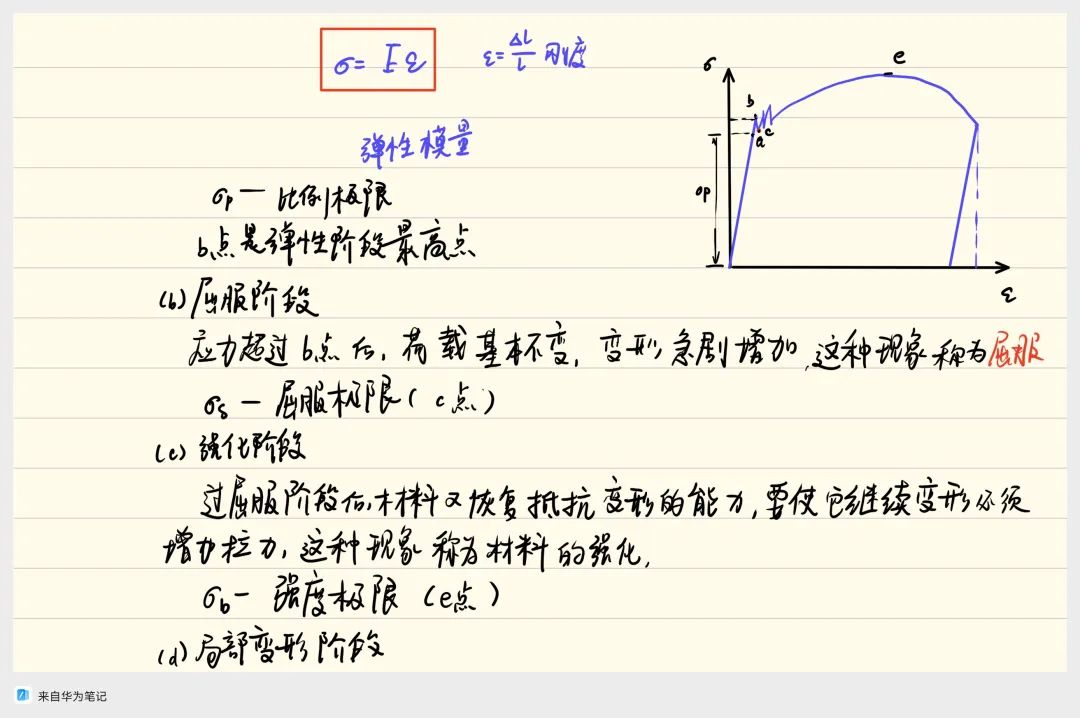 σ = Eε
ε = ΔL/L 刚度
弹性模量
σp — 比例极限
b点是弹性阶段最高点
(b) 屈服阶段
应力超过b点后，荷载基本不变，变形急剧增加，这种现象称为屈服
σs — 屈服极限（c点）
(c) 强化阶段
过屈服阶段后，材料又恢复抵抗变形的能力，要使它继续变形必须
增加拉力，这种现象称为材料的强化，
σb — 强度极限（e点）
(d) 局部变形阶段
σ
e
b
c
a
σp
ε
来自华为笔记